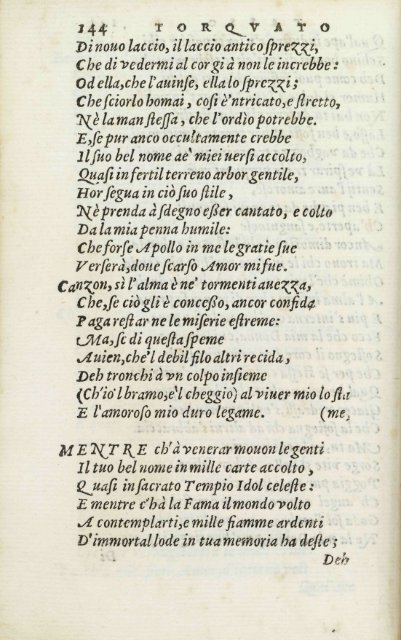 144 TORQVATO
Di nouo laccio, il laccio antico sprezzi,
Che di vedermi al cor già non le increbbe:
Od ella, che l'auinse, ella lo sprezzi;
Che sciorlo homai, così è 'ntricato, e stretto,
Nè la man stessa, che l'ordìo potrebbe.
E, se pur anco occultamente crebbe
Il suo bel nome ne' miei uersi accolto,
Quasi in fertil terreno arbor gentile,
Hor segua in ciò suo stile,
Nè prenda à sdegno esser cantato, e colto
Da la mia penna humile:
Che forse Apollo in me le gratie sue
Verserà, doue scarso Amor mi fue.
Canzon, sì l'alma è ne' tormenti auezza,
Che, se ciò gli è concesso, ancor confida
Paga restar ne le miserie estreme:
Ma, se di questa speme
Auien, che 'l debil filo altri recida,
Deh tronchi à vn colpo insieme
(Ch'io 'l bramo, e 'l cheggio) al viuer mio lo sta
E l'amoroso mio duro legame. (me,
MENTRE ch'à venerar mouon le genti
Il tuo bel nome in mille carte accolto,
Quasi in sacrato Tempio Idol celeste:
E mentre c'hà la Fama il mondo volto
A contemplarti, e mille fiamme ardenti
D'immortal lode in tua memoria ha deste;
Deh